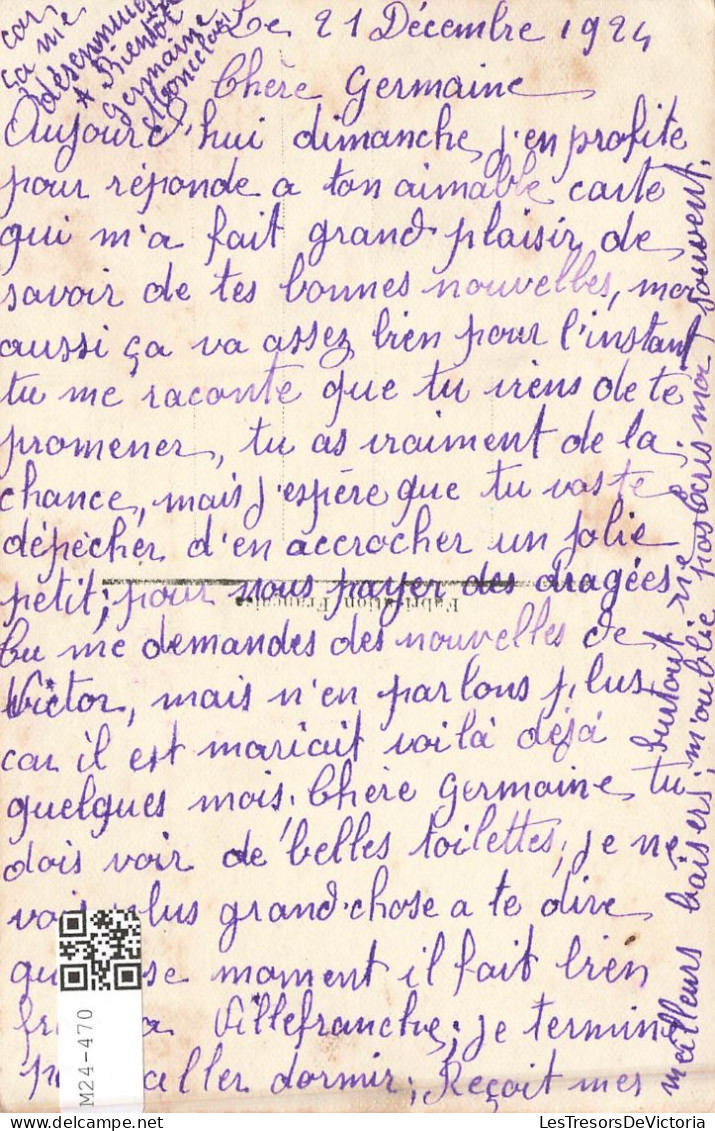 Le 21 Décembre 1924
Chère Germaine
Aujourd'hui dimanche, j'en profite
pour réponde a ton aimable carte
qui m'a fait grand plaisir de
savoir de tes bonnes nouvelles, moi
aussi ça va assez bien pour l'instant
tu me raconte que tu viens de te
promener, tu as vraiment de la
chance, mais j'espère que tu vas te
dépêcher d'en accrocher un jolie
petit; pour nous payer des dragées
Tu me demandes des nouvelles de
Victor, mais n'en parlons plus
car il est mariait voilà déjà
quelques mois. Chère Germaine tu
dois voir de belles toilettes, je ne
vois plus grand-chose a te dire
se moment il fait bien
a Villefranche; je termine
aller dormir; Reçoit mes
meilleurs baisers; Surtout ne
m'oublie pas écris moi souvent.
car
ça me
désennuie
A Bientôt
Germaine
Fabrication Française
M24-470
LesTresorsDeVictoria